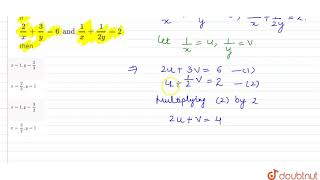 If
2/x + 3/y = 6 and 1/x + 1/2y = 2
then
x = 1, y = 2/3
x = 2/3, y = 1
x = 1, y = 3/2
x = 3/2, y = 1
x y , x + 1/2y = 2.
Let 1/x = u, 1/y = v
⇒ 2u + 3v = 6 —(1)
u + 1/2 v = 2 —(2)
Multiplying (2) by 2
2u + v = 4
doubtnut